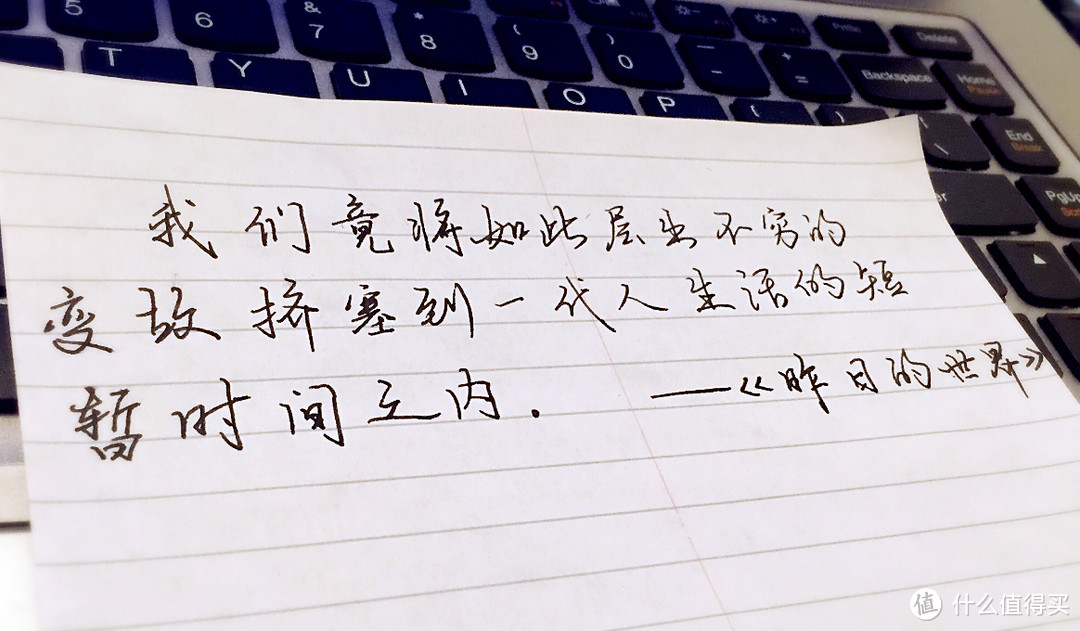 5 6 & 7 * 8 ( 9 ) 0 — - + = Delete
T Y U I O P Backspace Home Pause
End Break
PgUp
我们竟将如此层出不穷的
变故挤塞到一代人生活的短
暂时间之内.
——《昨日的世界》
值 什么值得买